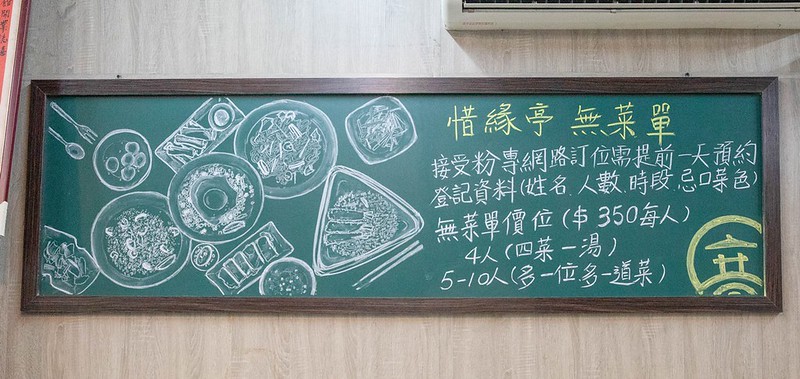 惜緣亭 無菜單
接受粉專網路訂位需提前一天預約
登記資料(姓名、人數、時段、忌口菜色)
無菜單價位($350每人)
4人(四菜一湯)
5-10人(多一位多一道菜)